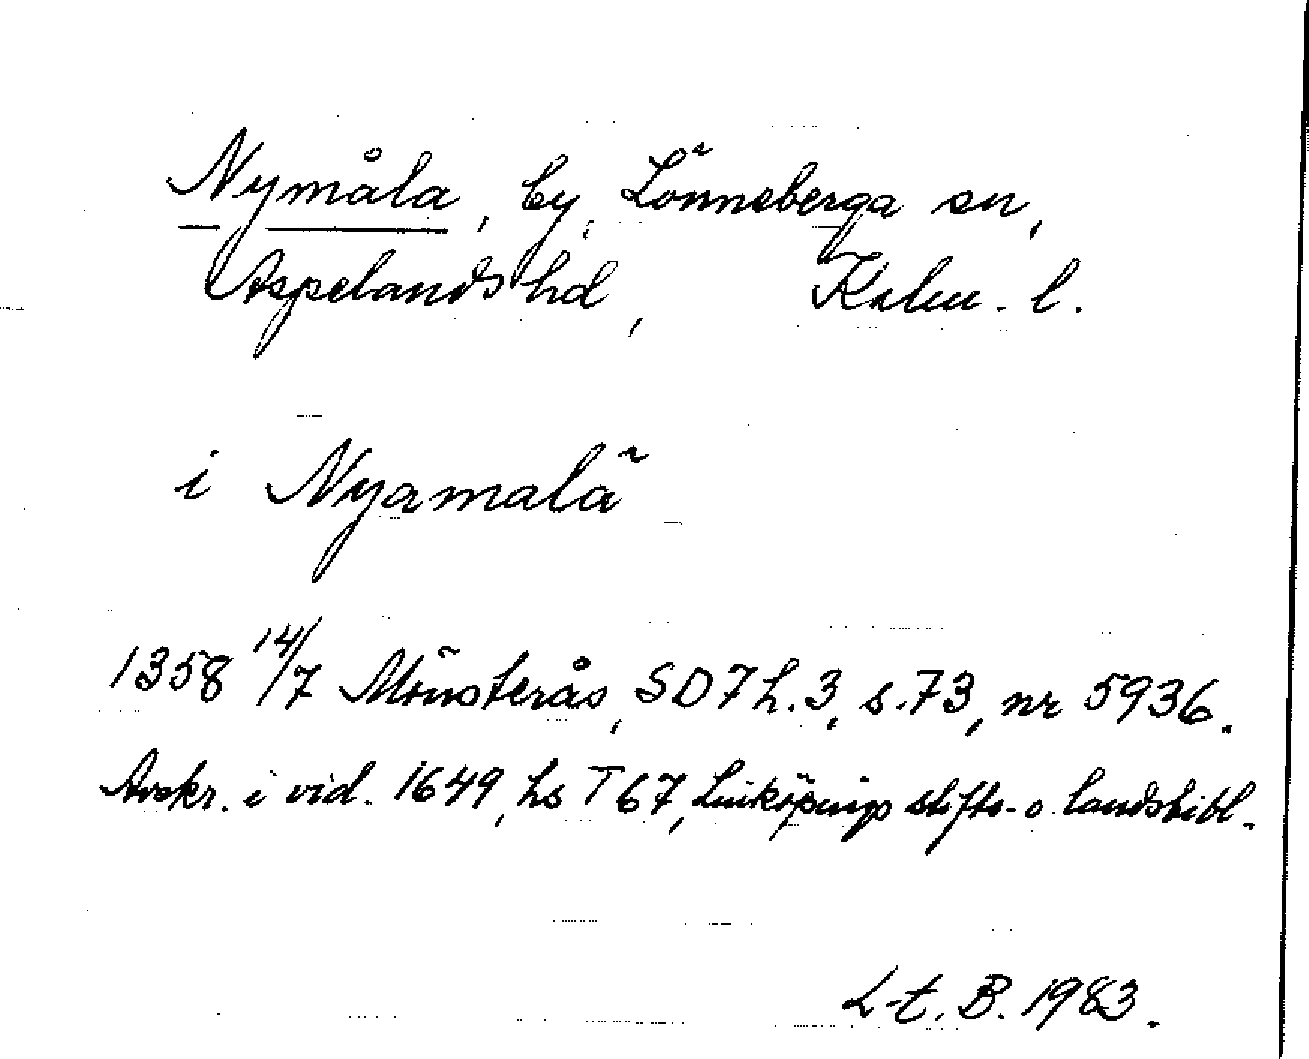 Nymåla, by, Lönneberga sn,
Aspelands hd, Kalm. l.
i Nyamalä
1358 14/7 Mönsterås, SD 7 h. 3, s. 73, nr 5936.
Avskr. i vid. 1649, hs T 67, Linköpings stifts- o landsbibl.
L-t. B. 1983.